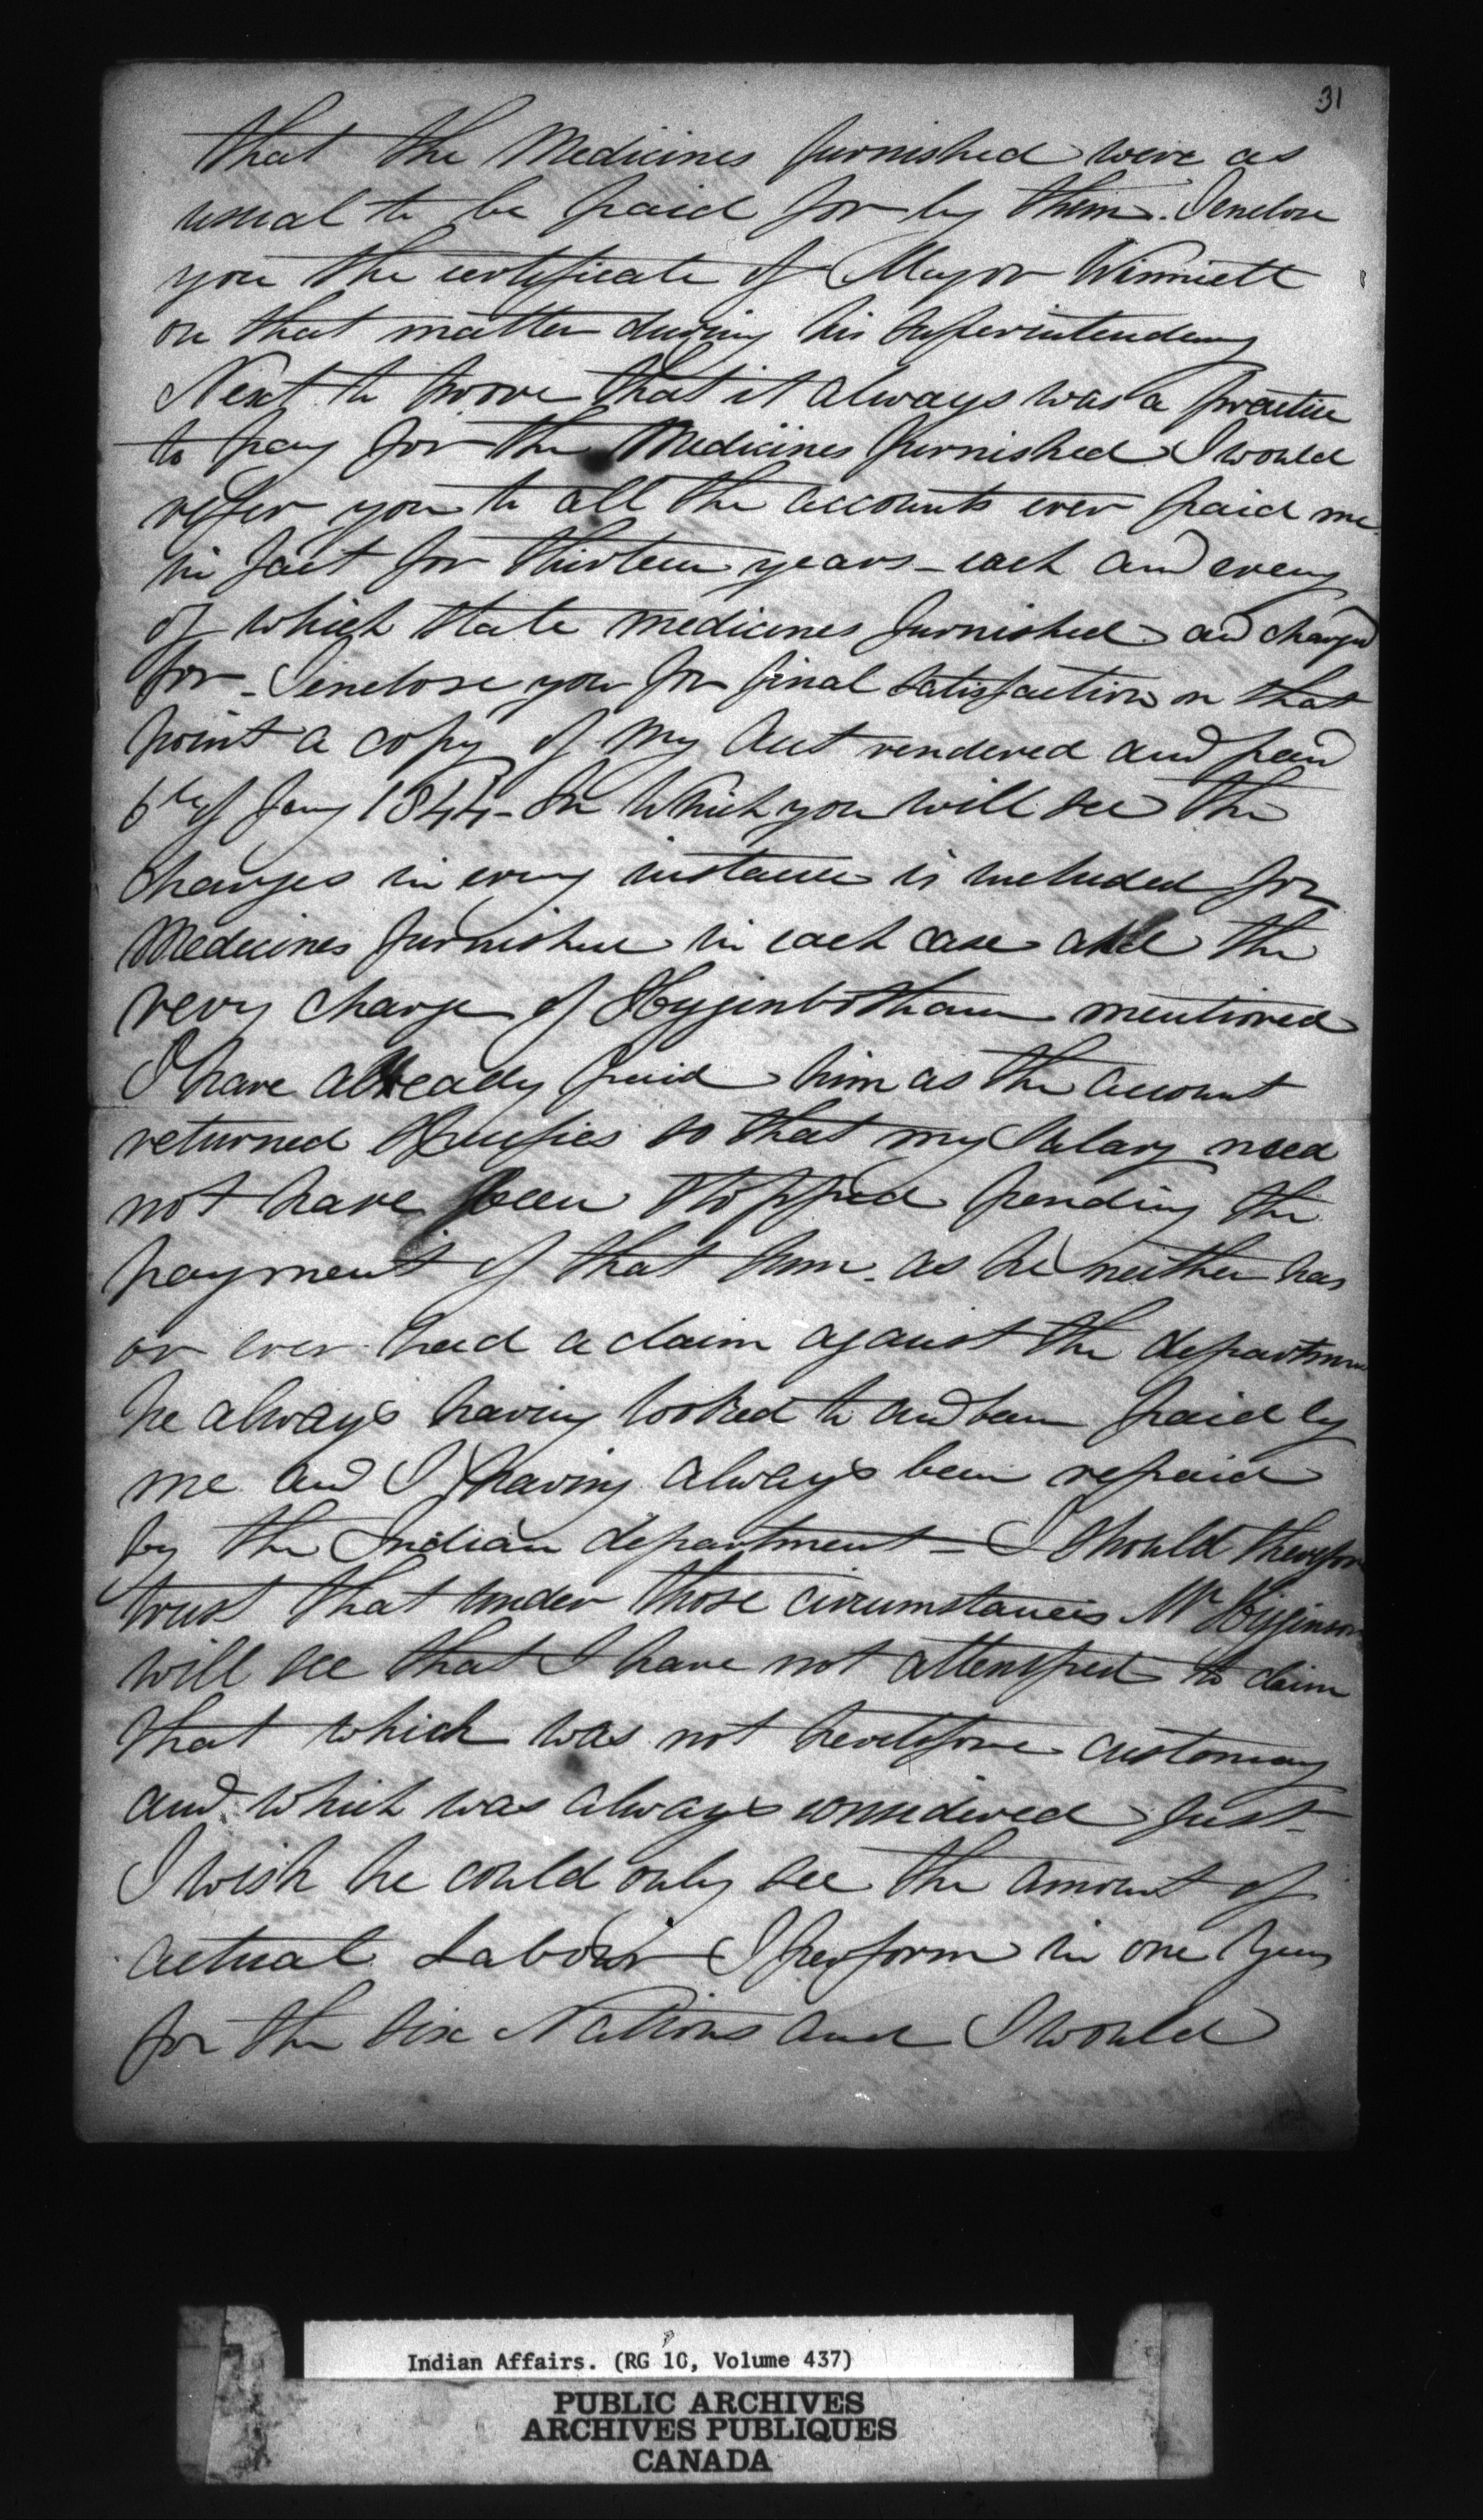 31
that the Medicines furnished were as
usual to be paid for by them. I enclose
you the certificate of Major Winniett
on that matter during his superintendency
Next to prove that it always was a practice
to pay for the Medicines furnished I would
refer you to all the accounts ever paid me
in fact for thirteen years - each and every
of which state medicines furnished and charged
for - I enclose you for final satisfaction on that
point a copy of my Acct rendered and paid
6th of Jany 1844 - In which you will see the
charges in every instance is included for
Medicines furnished in each case and the
very charge of Hyginbotham mentioned
I have already paid him as the account
returned specifies so that my Salary need
not have been stopped pending the
payment of that sum. as he neither has
or ever had a claim against the department
he always having looked to and been paid by
me and I having always been repaid
by the Indian department - I should therefore
trust that under those circumstances Mr Higginson
will see that I have not attempted to claim
that which was not heretofore customary
and which was always considered just -
I wish he could only see the amount of
actual Labour I perform in one Year
for the Six Nations and I would
Indian Affairs. (RG 10, Volume 437)
PUBLIC ARCHIVES
ARCHIVES PUBLIQUES
CANADA